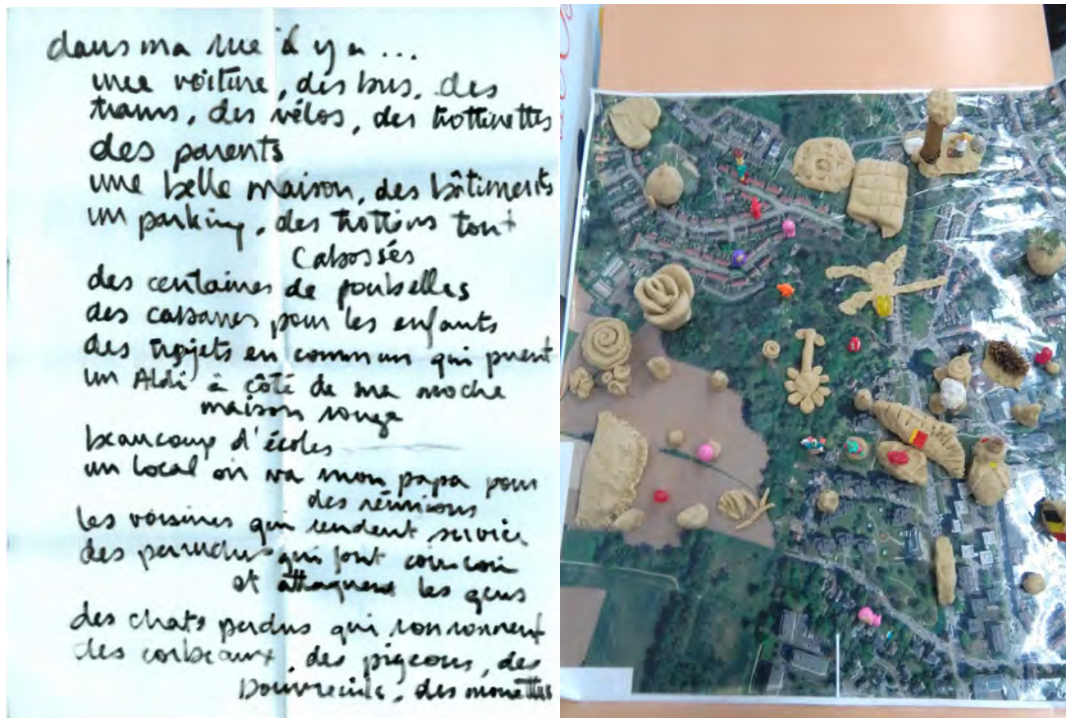 dans ma rue il y a...
une voiture, des bus, des
trams, des vélos, des trottinettes
des parents
une belle maison, des bâtiments
un parking, des trottoirs tout
cabossés
des centaines de poubelles
des cabanes pour les enfants
des trajets en commun qui puent
un Aldi à côté de ma moche
maison rouge
beaucoup d'écoles
un local où va mon papa pour
des réunions
les voisines qui rendent service
des perruches qui font coin coin
et attaquent les gens
des chats perdus qui ronronnent
des corbeaux, des pigeons, des
bouvreuils, des mouettes